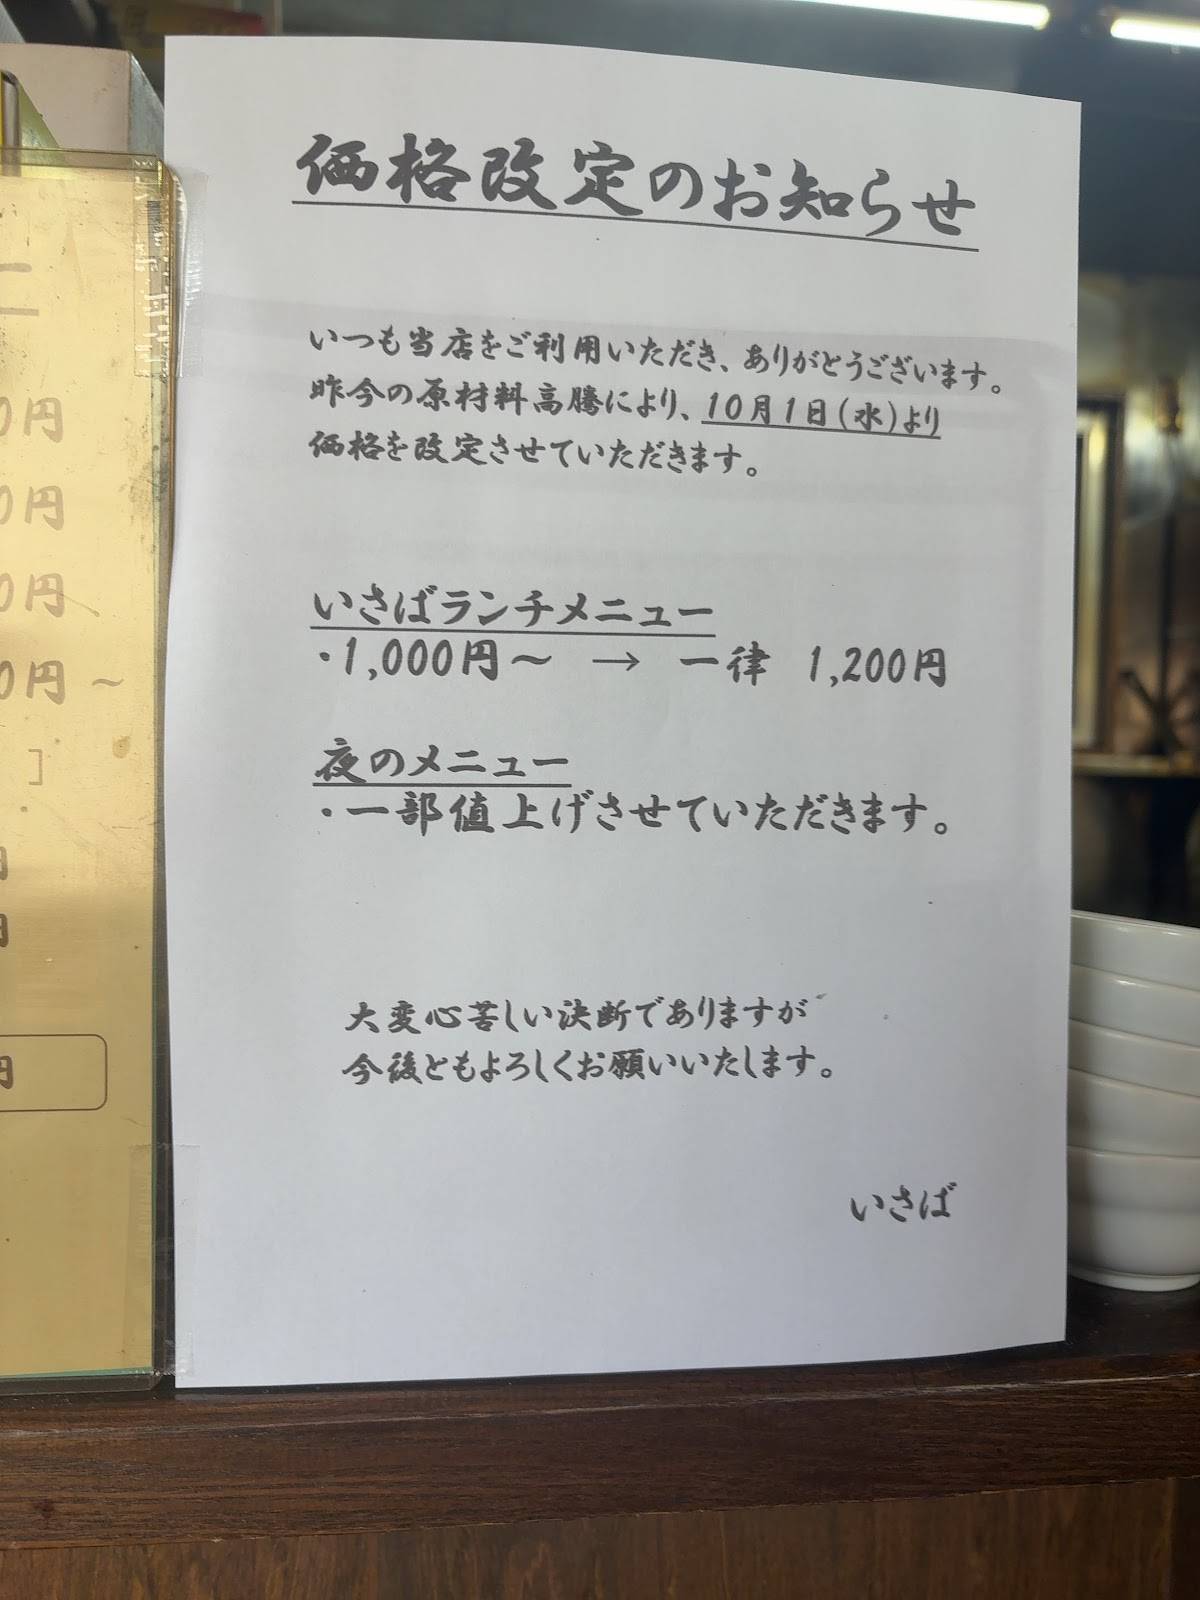 価格改定のお知らせ
いつも当店をご利用いただき、ありがとうございます。
昨今の原材料高騰により、10月1日(水)より
価格を改定させていただきます。
いさばランチメニュー
・1,000円～ → 一律 1,200円
夜のメニュー
・一部値上げさせていただきます。
大変心苦しい決断でありますが
今後ともよろしくお願いいたします。
いさば
ー
0円
0円
0円
0円～
]
円
円
円